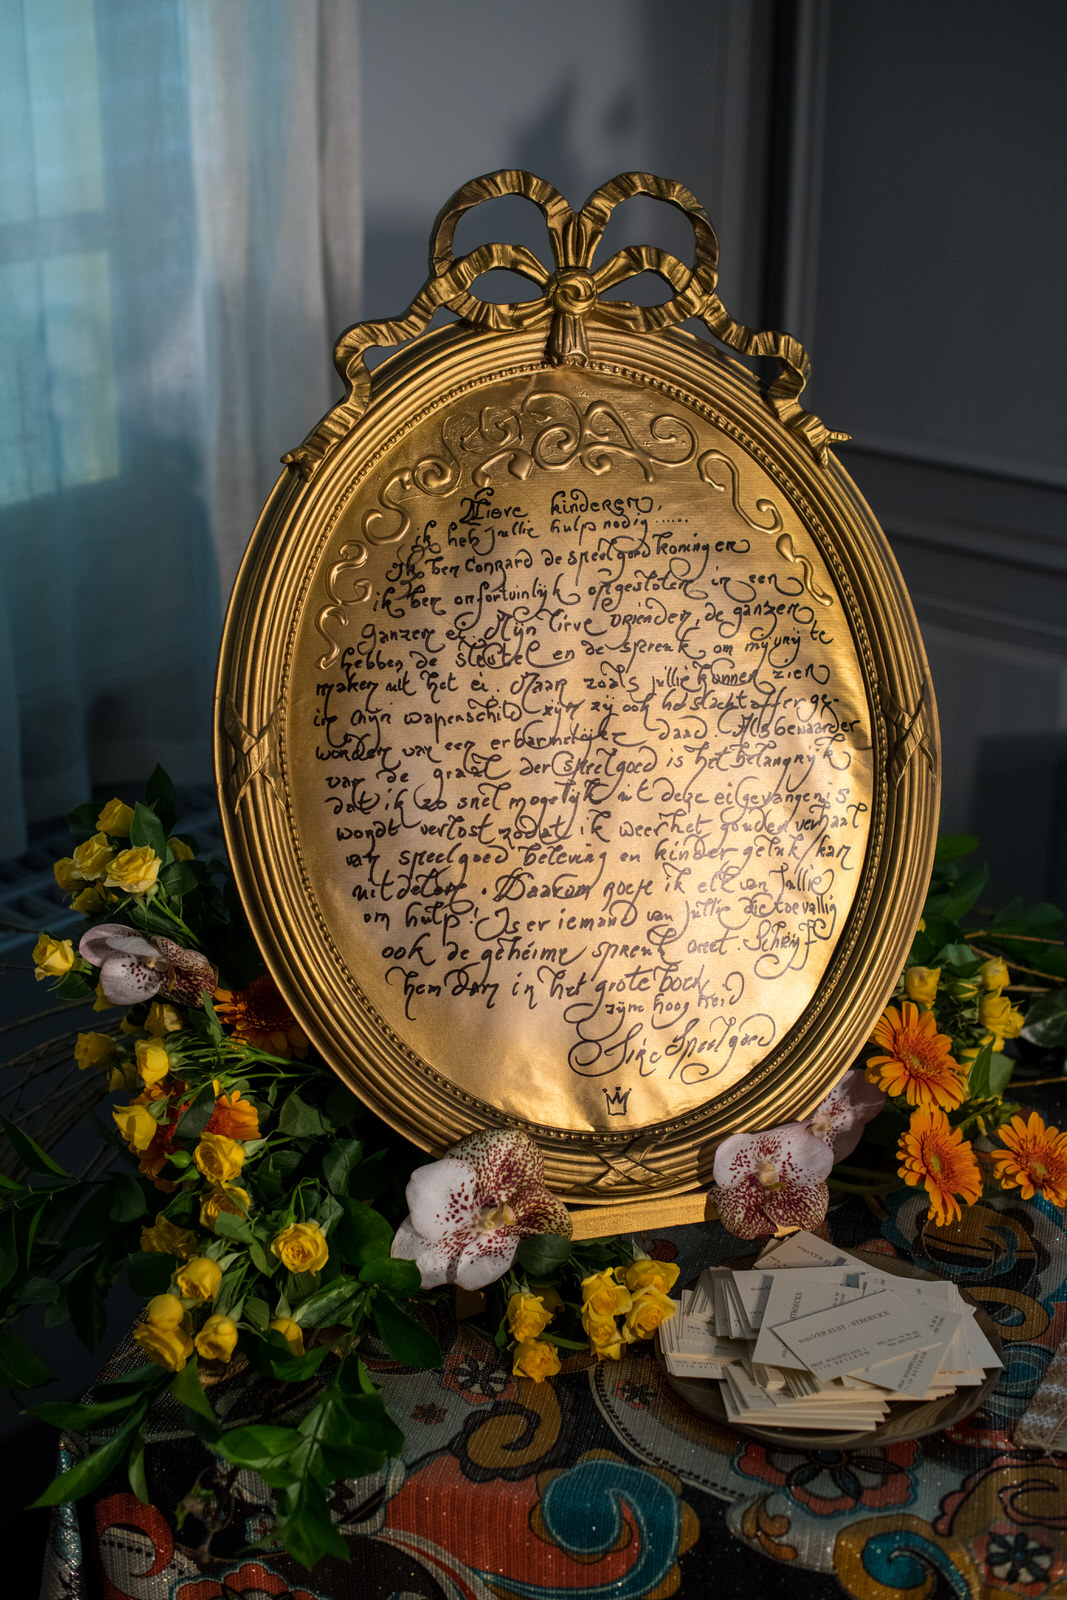 Lieve kinderen,
ik heb jullie hulp nodig ......
Ik ben Conrard de speelgoed koning en
ik ben onfortuinlijk opgesloten in een
ganzen ei. Mijn lieve vrienden, de ganzen
hebben de sleutel en de spreuk om mij vrij te
maken uit het ei. Maar zoals jullie kunnen zien
in mijn wapenschild zijn zij ook het slachtoffer ge-
worden van een erbarmelijke daad. Als bewaarder
van de graal der speelgoed is het belangrijk
dat ik zo snel mogelijk uit deze ei gevangenis
wordt verlost zodat ik weer het gouden verhaal
van speelgoed beleving en kinder geluk kan
uitdelen. Daarom roep ik elk van jullie
om hulp! Is er iemand van jullie die toevallig
ook de geheime spreuk weet. Schrijf
hem dan in het grote boek
zijne hoogheid
Sire Speelgoed
VER ELST - STROECKX